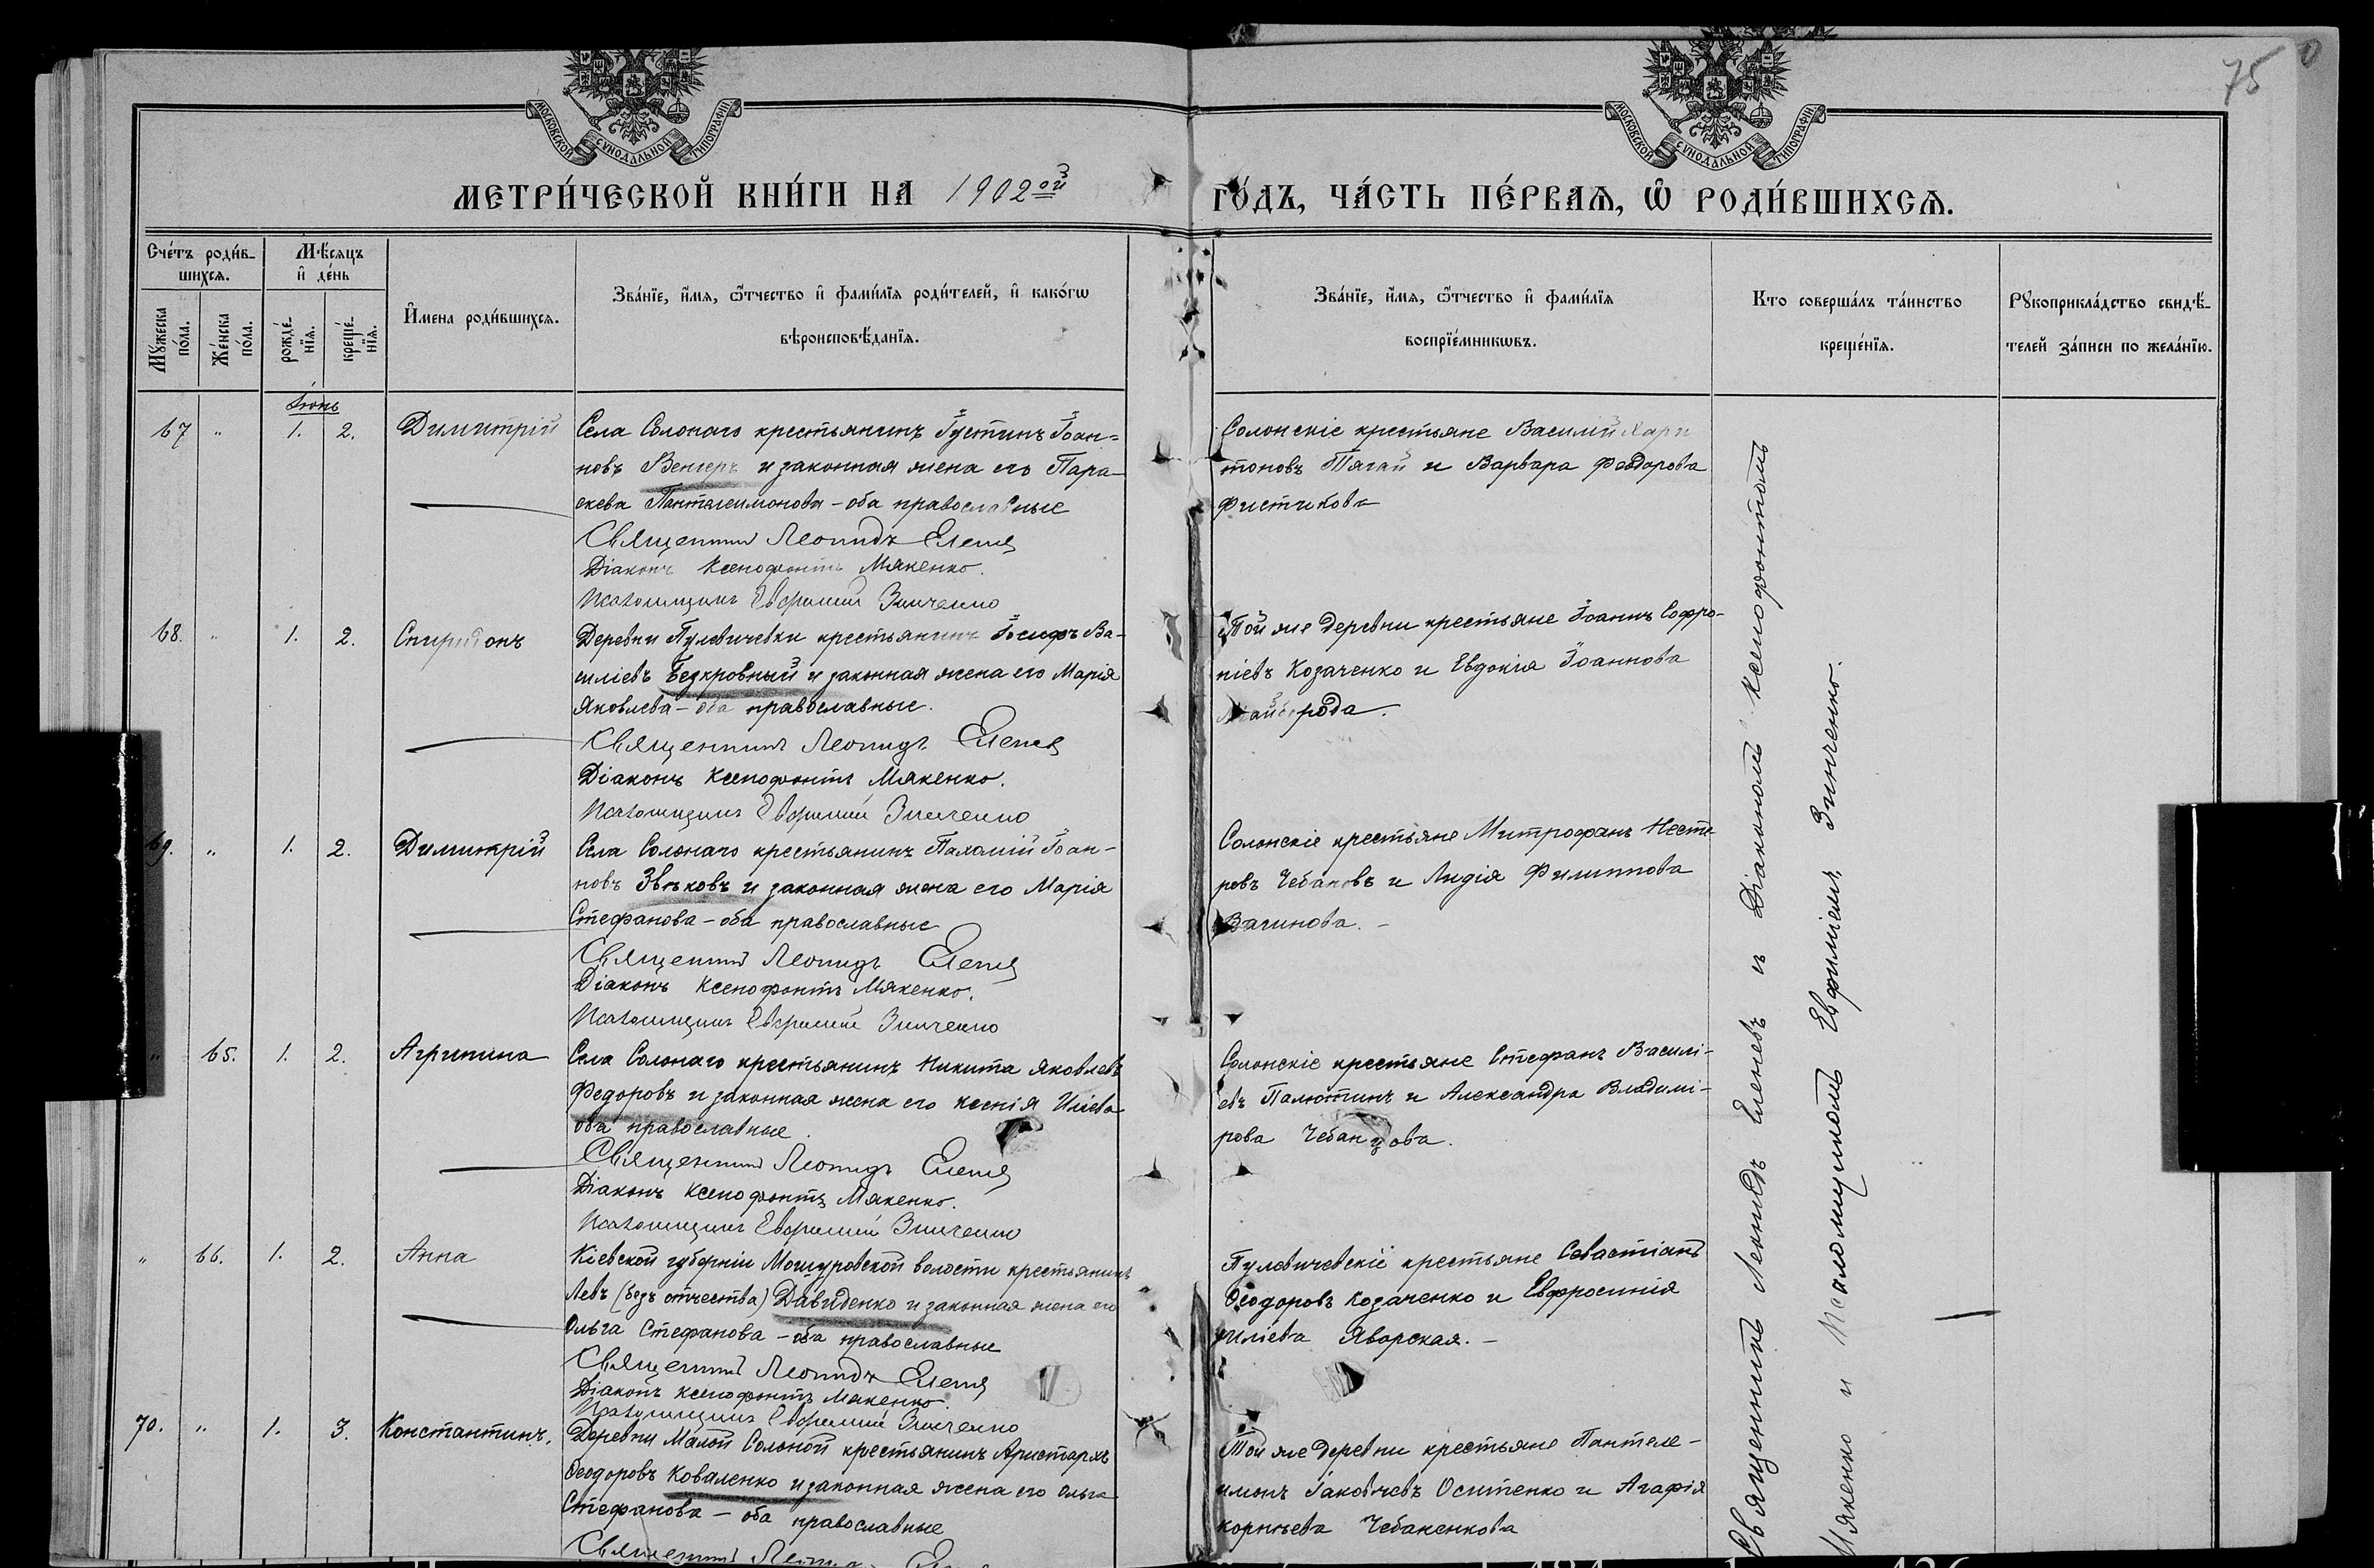 75
МОСКОВСКОЙ СУНОДАЛЬНОЙ ТИПОГРАФІИ
МОСКОВСКОЙ СУНОДАЛЬНОЙ ТИПОГРАФІИ
МЕТРИ́ЧЕСКОЙ КНИ́ГИ НА 1902ой
ГО́ДЪ, ЧА́СТЬ ПЕ́РВАѦ, Ѡ РОДИ́ВШИХСѦ.
Сче́тъ роди́в-
шихсѧ.
Мѣ́сѧцъ
и де́нь
Мꙋ́жеска
по́ла.
Же́нска
по́ла.
рожде́-
нїѧ.
креще́-
нїѧ.
Имена роди́вшихсѧ.
Зва́нїе, и́мѧ, ѻ́тчество и фами́лїѧ роди́телей, и како́гѡ
вѣроисповѣ́данїѧ.
Зва́нїе, и́мѧ, ѻ́тчество и фами́лїѧ
воспрїе́мникѡвъ.
Кто соверша́лъ та́инство
креще́нїѧ.
Рꙋкоприкла́дство свидѣ́-
телей за́писи по жела́нїю.
Іюнь
67 " 1. 2. Димитрій
Села Солонаго крестьянинъ Іустинъ Іоан=
новъ Венгеръ и законная жена его Пара-
скева Пантелеимонова - оба православные
Священникъ Леонидъ Еленев
Діаконъ Ксенофонтъ Мякенко.
Псаломщикъ Евфимій Зинченко
Солонскіе крестьяне Василій Хари
тоновъ Тягай и Варвара Феодорова
Фистикова
68. " 1. 2. Спиридонъ
Деревни Пулевичевки крестьянинъ Іосифъ Ва-
силіевъ Безкровный и законная жена его Марія
Яковлева - оба православные.
Священникъ Леонидъ Еленев
Діаконъ Ксенофонтъ Мякенко.
Псаломщикъ Евфимій Зинченко
Той же деревни крестьяне Іоаннъ Софро-
ніевъ Козаченко и Евдокія Іоаннова
Майборода.
69. " 1. 2. Димитрій
Села Солонаго крестьянинъ Пахомій Іоан-
новъ Звѣковъ и законная жена его Марія
Стефанова - оба православные
Священникъ Леонидъ Еленев
Діаконъ Ксенофонтъ Мякенко.
Псаломщикъ Евфимій Зинченко
Солонскіе крестьяне Митрофанъ Несте
ровъ Чебановъ и Лидія Филиппова
Вагинова. -
" 65. 1. 2. Агрипина
Села Солонаго крестьянинъ Никита Яковлевъ
Федоровъ и законная жена его Ксенія Иліева
оба православные.
Священникъ Леонидъ Еленев
Діаконъ Ксенофонтъ Мякенко.
Псаломщикъ Евфимій Зинченко
Солонскіе крестьяне Стефанъ Василі-
евъ Палютинъ и Александра Владимі-
рова Чебанцова.
" 66. 1. 2. Анна
Кіевской губерніи Мошуровской волости крестьянинъ
Левъ (безъ отчества) Давиденко и законная жена его
Ольга Стефанова - оба православные
Священникъ Леонидъ Еленев
Діаконъ Ксенофонтъ Мякенко.
Псаломщикъ Евфимій Зинченко
Пулевичевскіе крестьяне Севастіанъ
Ѳеодоровъ Козаченко и Евфросинія
Иліева Яворская. -
70. " 1. 3. Константинъ.
Деревни Малой Солоной крестьянинъ Аристархъ
Ѳеодоровъ Коваленко и законная жена его Ольга
Стефанова - оба православные
Священникъ
Той же деревни крестьяне Пантеле-
имонъ Іаковлевъ Оситенко и Агафія
Корнѣева Чебаненкова
Священникъ Леонидъ Еленевъ и Діакономъ Ксенофонтомъ
Мякенко и Псаломщикомъ Евфиміемъ Зинченко.